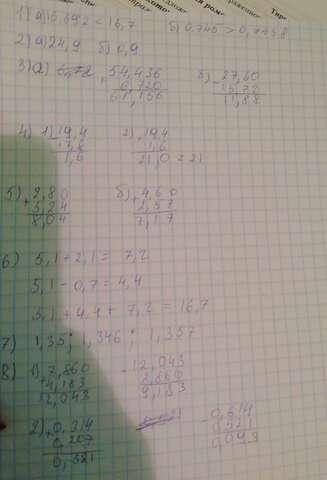 1) а) 15,692 < 16,7   б) 0,745 > 0,7438
2) а) 24,9   б) 0,9
3) а) + 54,436   б) - 27,60
6,720   15,72
61,156   11,88
4) 1) - 19,4   2) + 19,4
17,8   1,6
1,6   21,0 = 21
5) + 2,80   б) + 4,60
5,24   2,57
8,04   7,17
6) 5,1 + 2,1 = 7,2
5,1 - 0,7 = 4,4
5,1 + 4,4 + 7,2 = 16,7
7) 1,35; 1,346; 1,357
8) 1) + 7,860   - 12,043
4,183   2,860
12,043   9,183
2) + 0,314   - 0,614
0,207   0,521
0,521   0,093